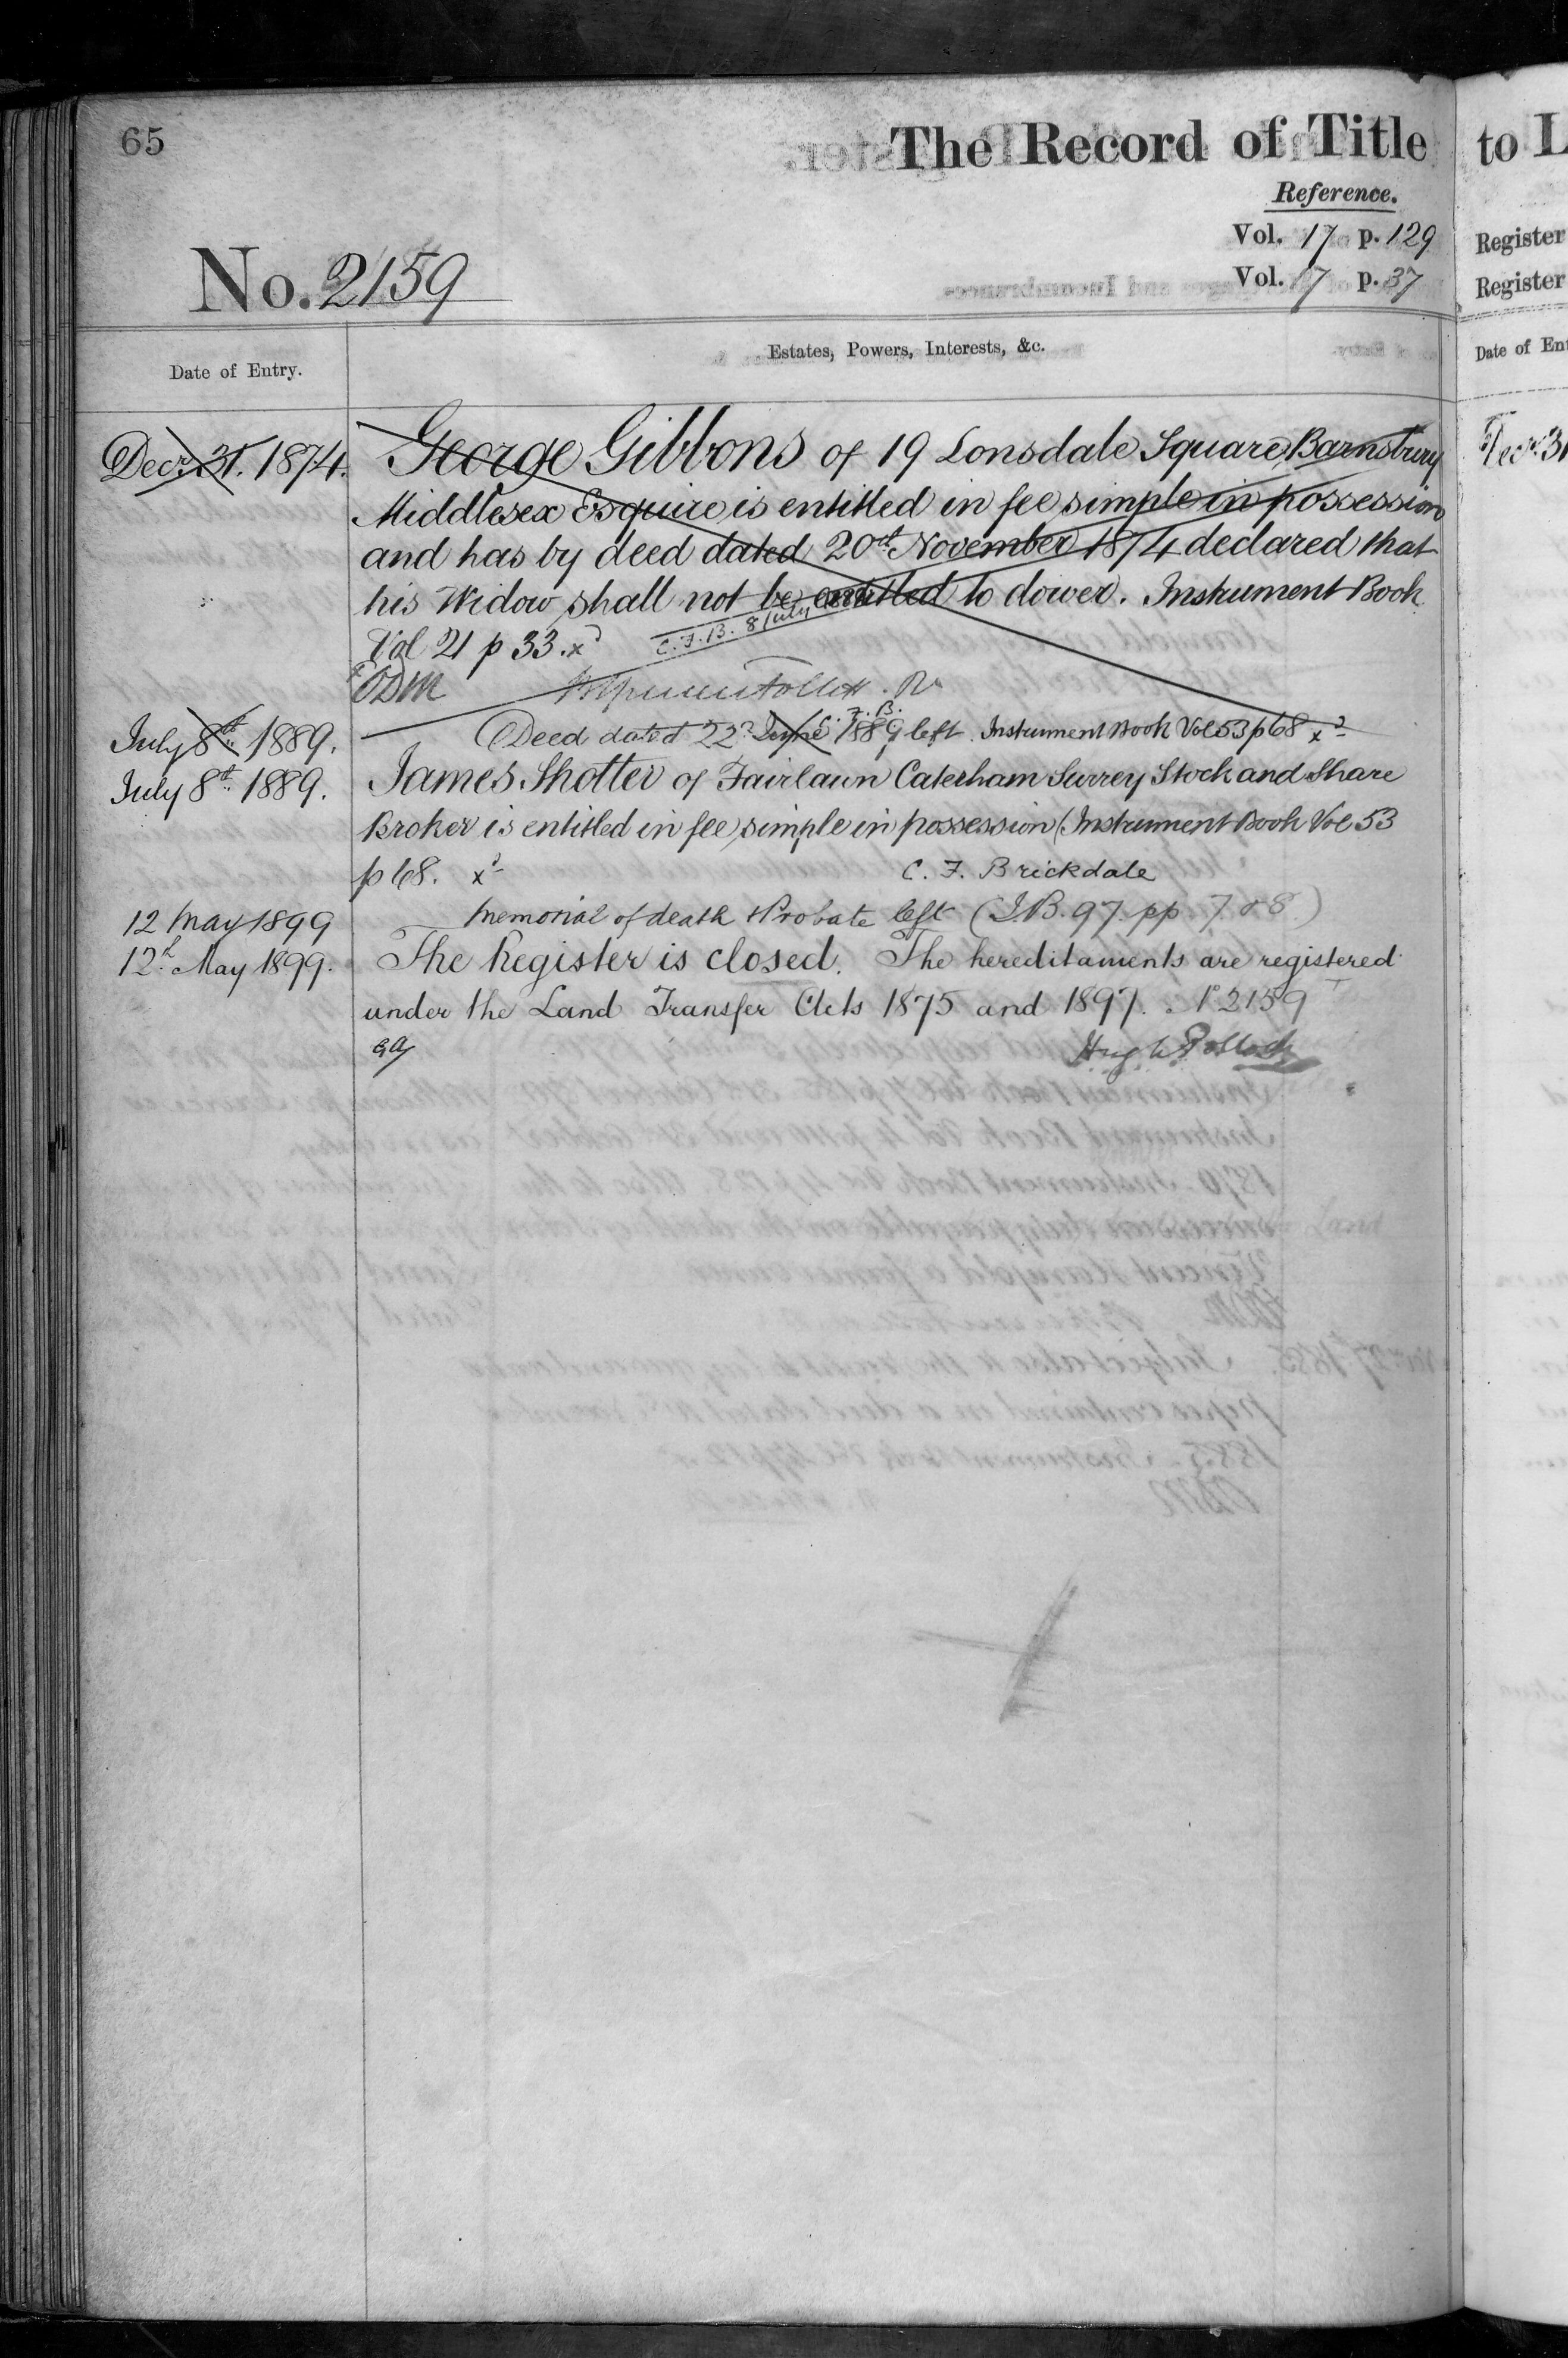 65
The Record of Title
Reference.
Vol. 17 p. 129
Vol. 17 p. 37
No. 2159
Date of Entry.
Estates, Powers, Interests, &c.
Decr. 31. 1874. George Gibbons of 19 Lonsdale Square, Barnsbury
Middlesex Esquire is entitled in fee simple in possession
and has by deed dated 20th November 1874 declared that
his Widow shall not be entitled to dower. Instrument Book
Vol 21 p 33. x
C. F. B. 8 July 1889
ODM Follett. R
C. F. B.
July 8th 1889. Deed dated 22d June 1889 left. Instrument Book Vol 53 p 68 x
July 8th 1889. James Shotter of Fairlawn Caterham Surrey Stock and Share
Broker is entitled in fee simple in possession (Instrument Book Vol 53
p 68. x C. F. Brickdale
12 May 1899 Memorial of death & Probate left (I.B. 97. pp. 7 & 8)
12th May 1899. The Register is closed. The hereditaments are registered
under the Land Transfer Acts 1875 and 1897. No 2159
Hugh Pollock
to L
Register
Register
Date of Ent
Decr. 31